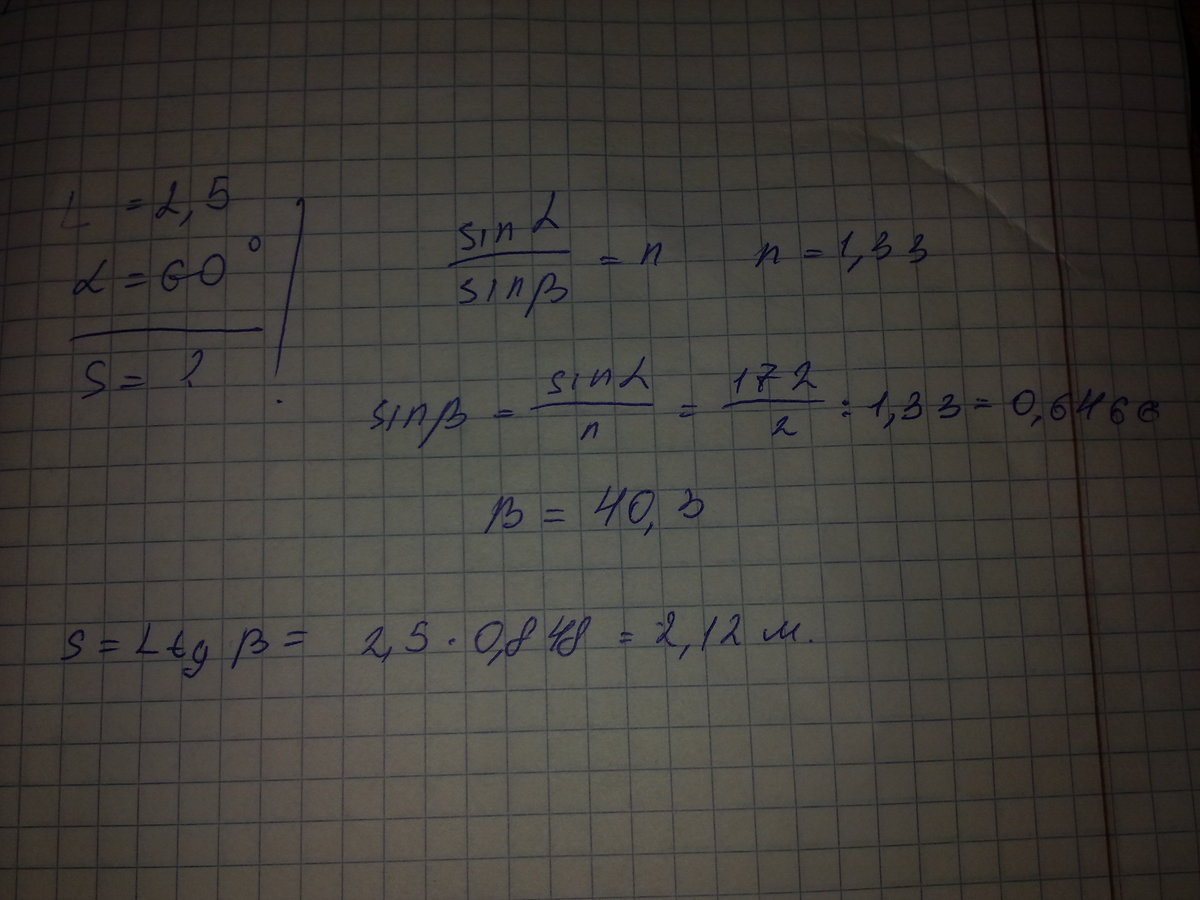 L = 2,5
α = 60°
S = ?
sin α / sin β = n    n = 1,33
sin β = sin α / n = 172 / 2 : 1,33 = 0,6466
β = 40,3
S = L tg β = 2,5 · 0,848 = 2,12 м.